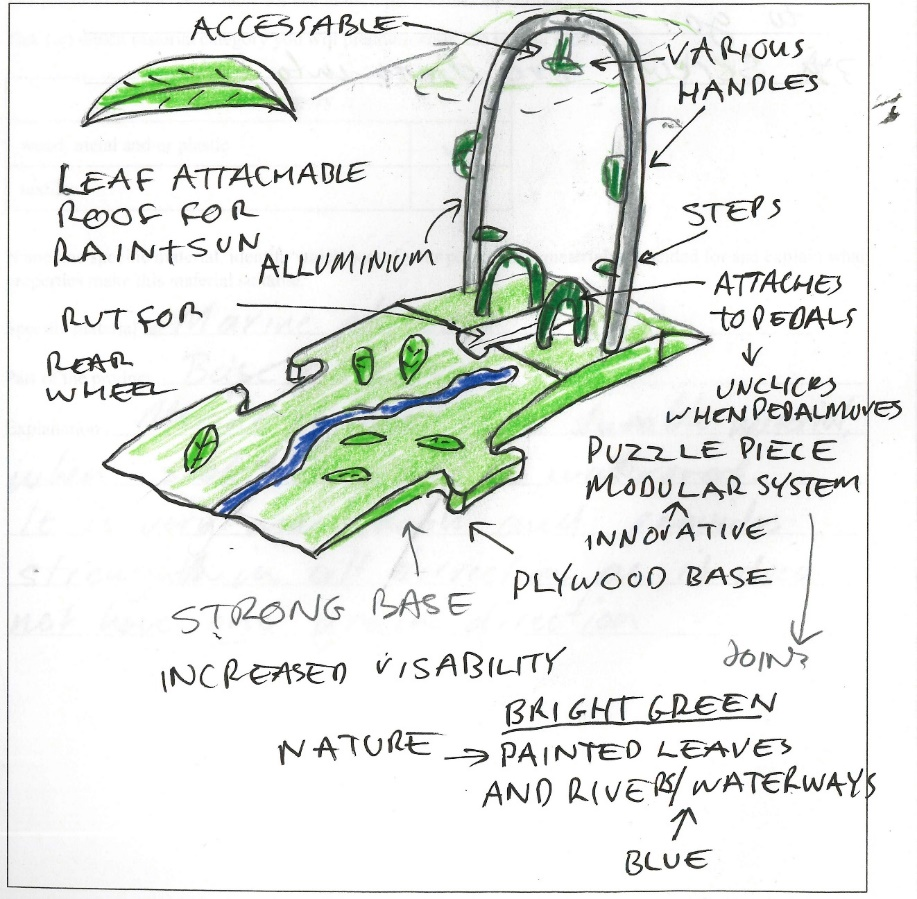 ACCESSABLE
VARIOUS
HANDLES
LEAF ATTACHABLE
ROOF FOR
RAIN+SUN
ALLUMINIUM
STEPS
ATTACHES
TO PEDALS
RUT FOR
REAR
WHEEL
UNCLICKS
WHEN PEDAL MOVES
PUZZLE PIECE
MODULAR SYSTEM
INNOVATIVE
PLYWOOD BASE
STRONG BASE
JOINS
INCREASED VISABILITY
BRIGHT GREEN
NATURE → PAINTED LEAVES
AND RIVERS/WATERWAYS
BLUE